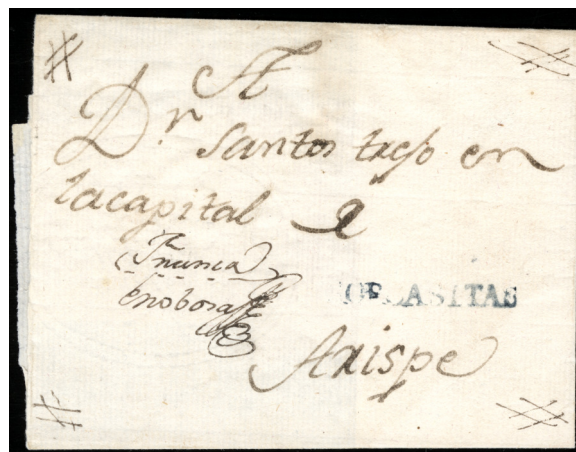 A
Dn Santos trejo en
lacapital e
ORCASITAS
Arispe